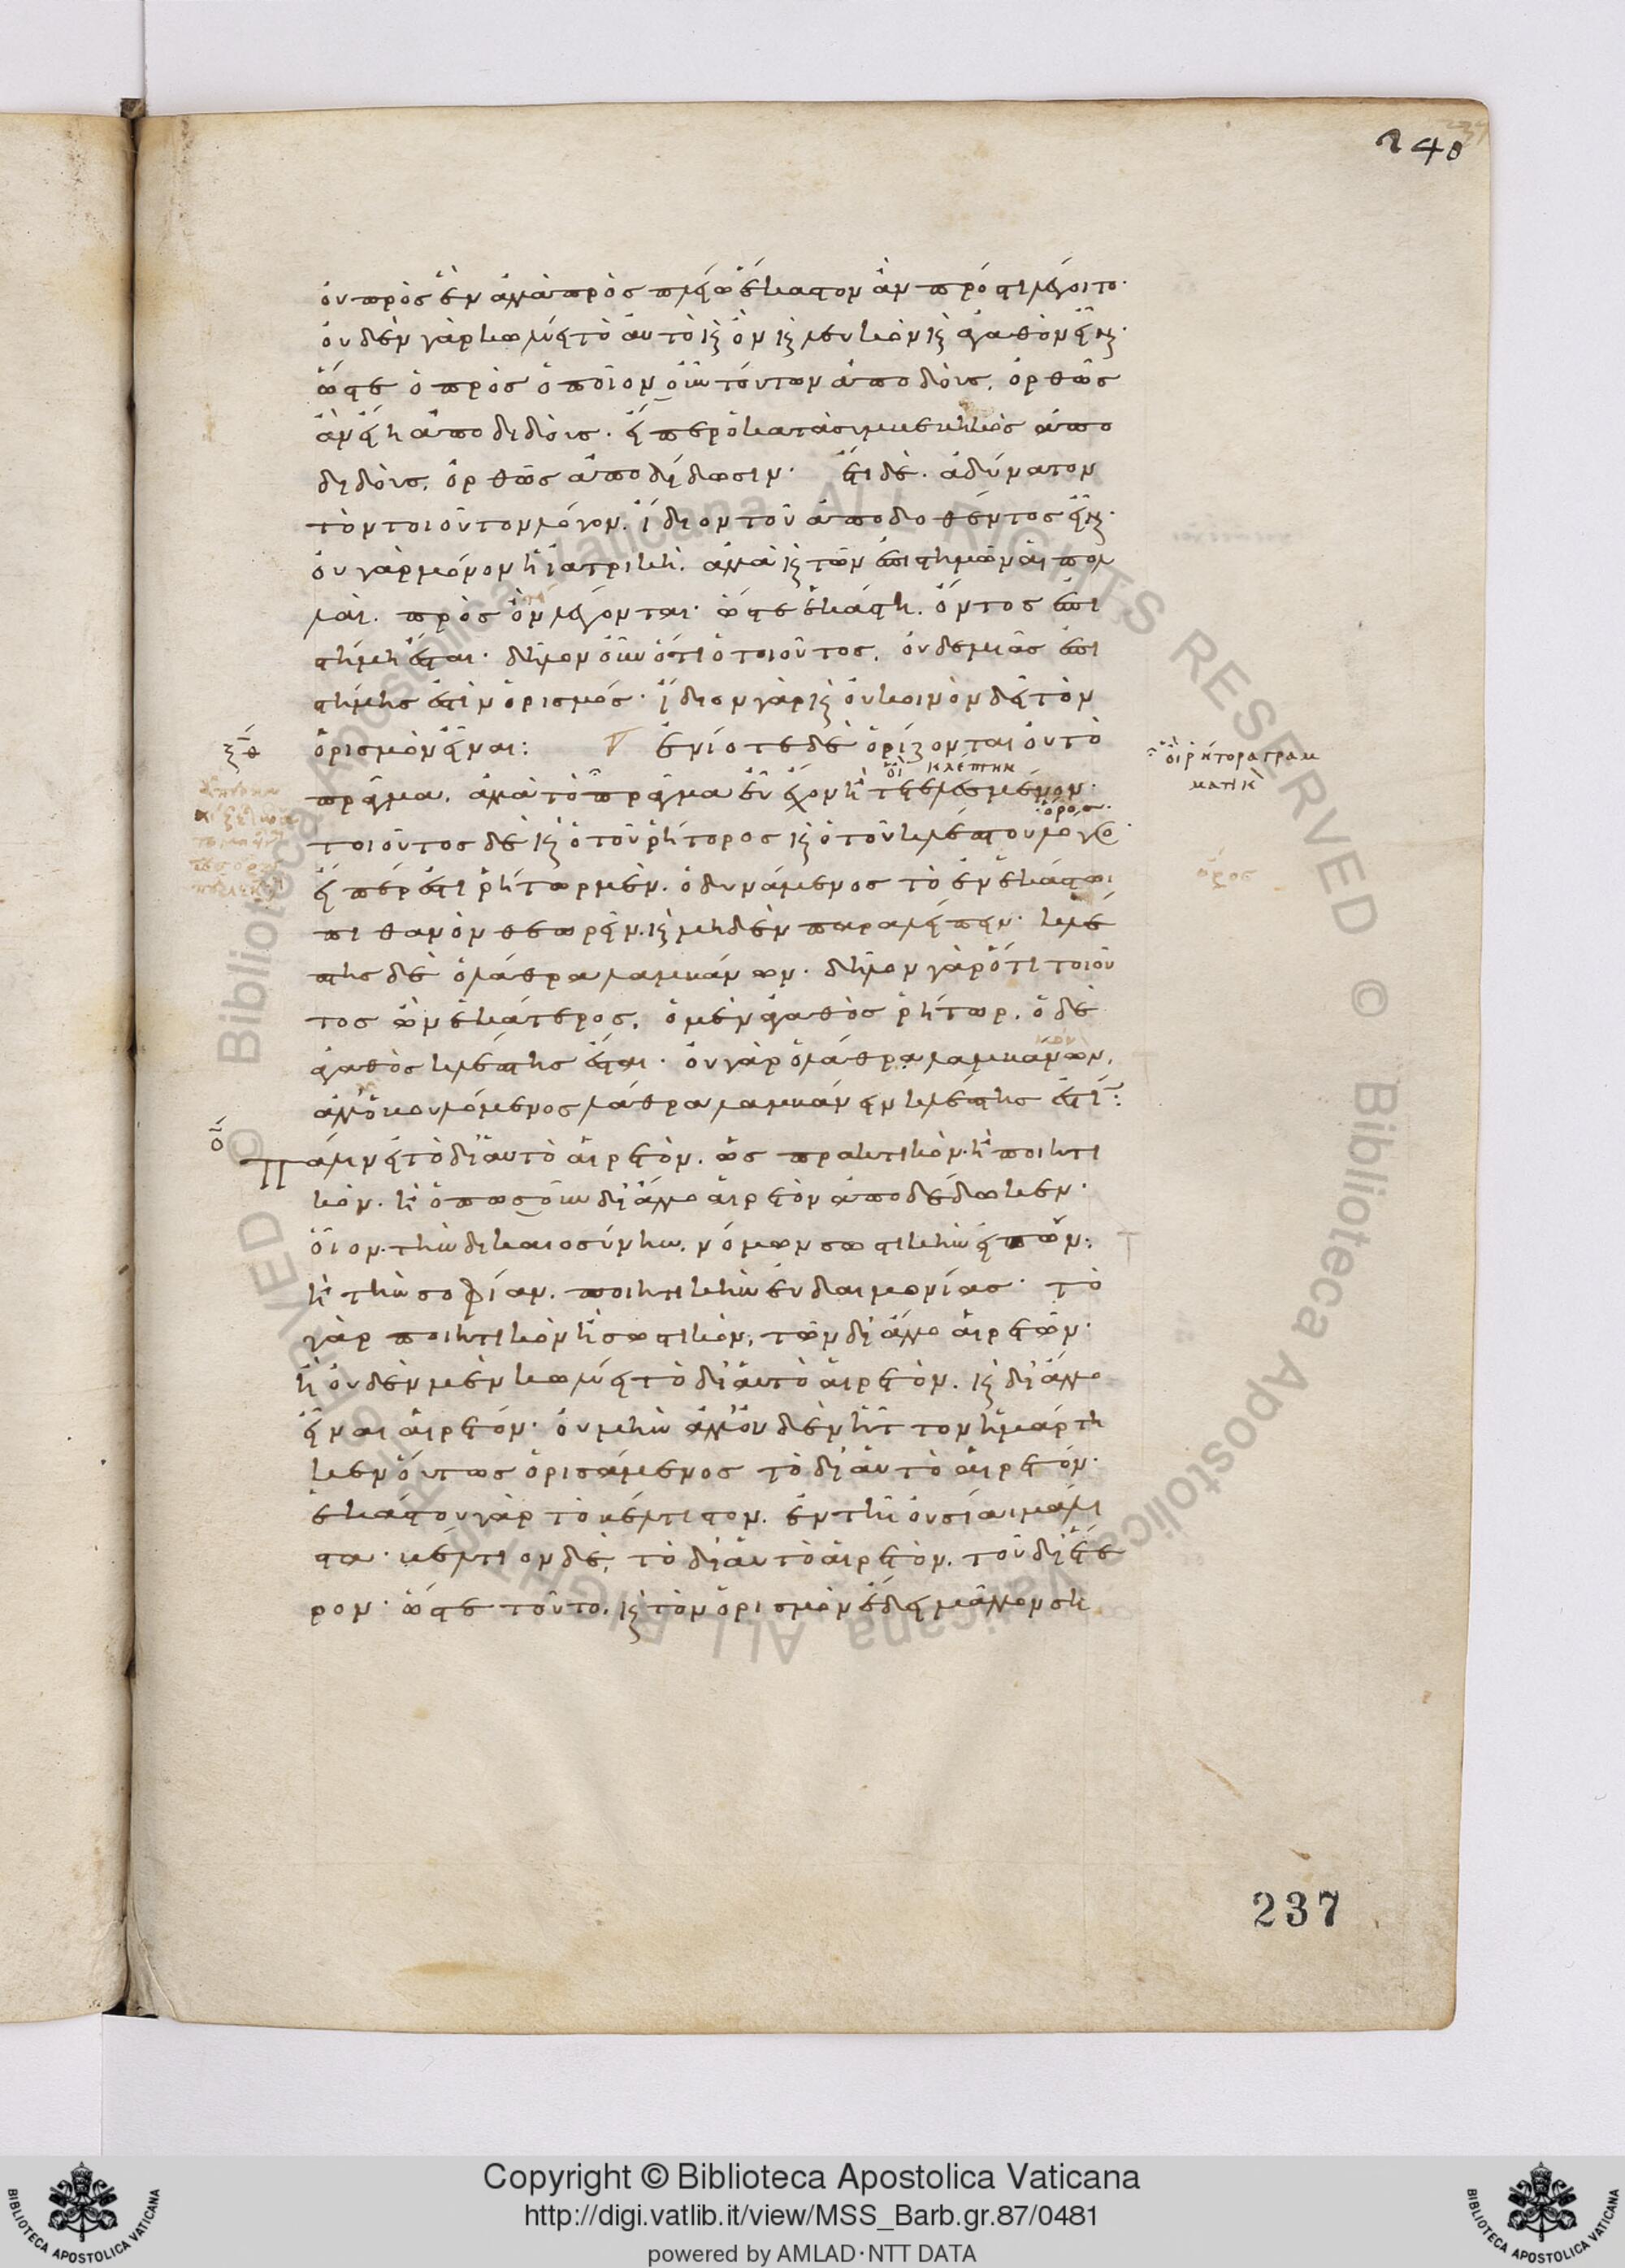 οὐ πρὸς ἓν ἀλλὰ πρὸς πλείω ἕκαστον ἂν πρός τι λέγοιτο·
οὐδὲν γὰρ κωλύει τὸ αὐτὸ καὶ ὂν καὶ λευκὸν καὶ ἀγαθὸν εἶναι·
ὥστε ὁ πρὸς ὁποῖον οὖν τούτων ἀποδοὺς, ὀρθῶς
ἂν εἴη ἀποδιδούς· εἴπερ ὁ κατὰ συμβεβηκὸς ἀπο
διδοὺς, ὀρθῶς ἀποδίδωσιν· ἔτι δὲ. ἀδύνατον
τὸν τοιοῦτον λόγον. ἴδιον τοῦ ἀποδοθέντος εἶναι·
οὐ γὰρ μόνον ἡ ἰατρικὴ. ἀλλὰ καὶ τῶν ἐπιστημῶν αἱ πολ
λαὶ. πρὸς ὂν λέγονται· ὥστε ἑκάστη. ὄντος ἐπι
στήμη ἔσται· δῆλον οὖν ὅτι ὁ τοιοῦτος, οὐδεμιᾶς ἐπι
στήμης ἐστὶν ὁρισμός· ἴδιον γὰρ καὶ οὐ κοινὸν δεῖ τὸν
ὁρισμὸν εἶναι: ἐνίοτε δὲ ὁρίζονται οὐ τὸ
οἱ ῥήτορα γραμ
ματικ
οἱ κλέπτην
πρᾶγμα. ἀλλὰ τὸ πρᾶγμα εὖ ἔχον ἢ τετελεσμένον·
ὅρος
τοιοῦτος δὲ καὶ ὁ τοῦ ῥήτορος καὶ ὁ τοῦ κλέπτου λόγος·
εἴπέρ ἐστι ῥήτωρ μὲν. ὁ δυνάμενος τὸ ἐν ἑκάστωι
πιθανὸν θεωρεῖν. καὶ μηδὲν παραλείπειν· κλέ
πτης δὲ ὁ λάθρα λαμβάνων· δῆλον γὰρ ὅτι τοιοῦ
τος ὢν ἑκάτερος, ὁ μὲν ἀγαθὸς ῥήτωρ. ὁ δὲ
ἀγαθὸς κλέπτης ἔσται· οὐ γὰρ ὁ λάθρα λαμβάνων,
ἀλλ' ὁ βουλόμενος λάθρα λαμβάνειν κλέπτης ἐστί:
πάλιν εἰ τὸ δι' αὐτὸ αἱρετὸν. ὡς πρακτικὸν. ἢ ποιητι
κὸν. ἢ ὁπωσοῦν δι' ἄλλο αἱρετὸν ἀποδέδωκεν·
οἷον. τὴν δικαιοσύνην. νόμων σωστικὴν εἰπών.
ἢ τὴν σοφίαν. ποιητικὴν εὐδαιμονίας· τὸ
γὰρ ποιητικὸν ἢ σωστικὸν, τῶν δι' ἄλλο αἱρετῶν·
ἢ οὐδὲν μὲν κωλύει τὸ δι' αὐτὸ αἱρετὸν. καὶ δι' ἄλλο
εἶναι αἱρετόν· οὐ μὴν ἀλλ' οὐδὲν ἧττον ἡμάρτη
κεν ὁ οὕτως ὁρισάμενος τὸ δι' αὐτὸ αἱρετόν·
ἑκάστου γὰρ τὸ βέλτιστον. ἐν τῆι οὐσίαι μάλι
στα· βέλτιον δὲ, τὸ δι' αὐτὸ αἱρετὸν. τοῦ δι' ἕτε
ρον· ὥστε τοῦτο. καὶ τὸν ὁρισμὸν ἔδει μᾶλλον ση
240
237
Copyright © Biblioteca Apostolica Vaticana
http://digi.vatlib.it/view/MSS_Barb.gr.87/0481
powered by AMLAD·NTT DATA
BIBLIOTECA APOSTOLICA VATICANA
BIBLIOTECA APOSTOLICA VATICANA
© Biblioteca Apostolica Vaticana ALL RIGHTS RESERVED © Biblioteca Apostolica Vaticana ALL RIGHTS RESERVED